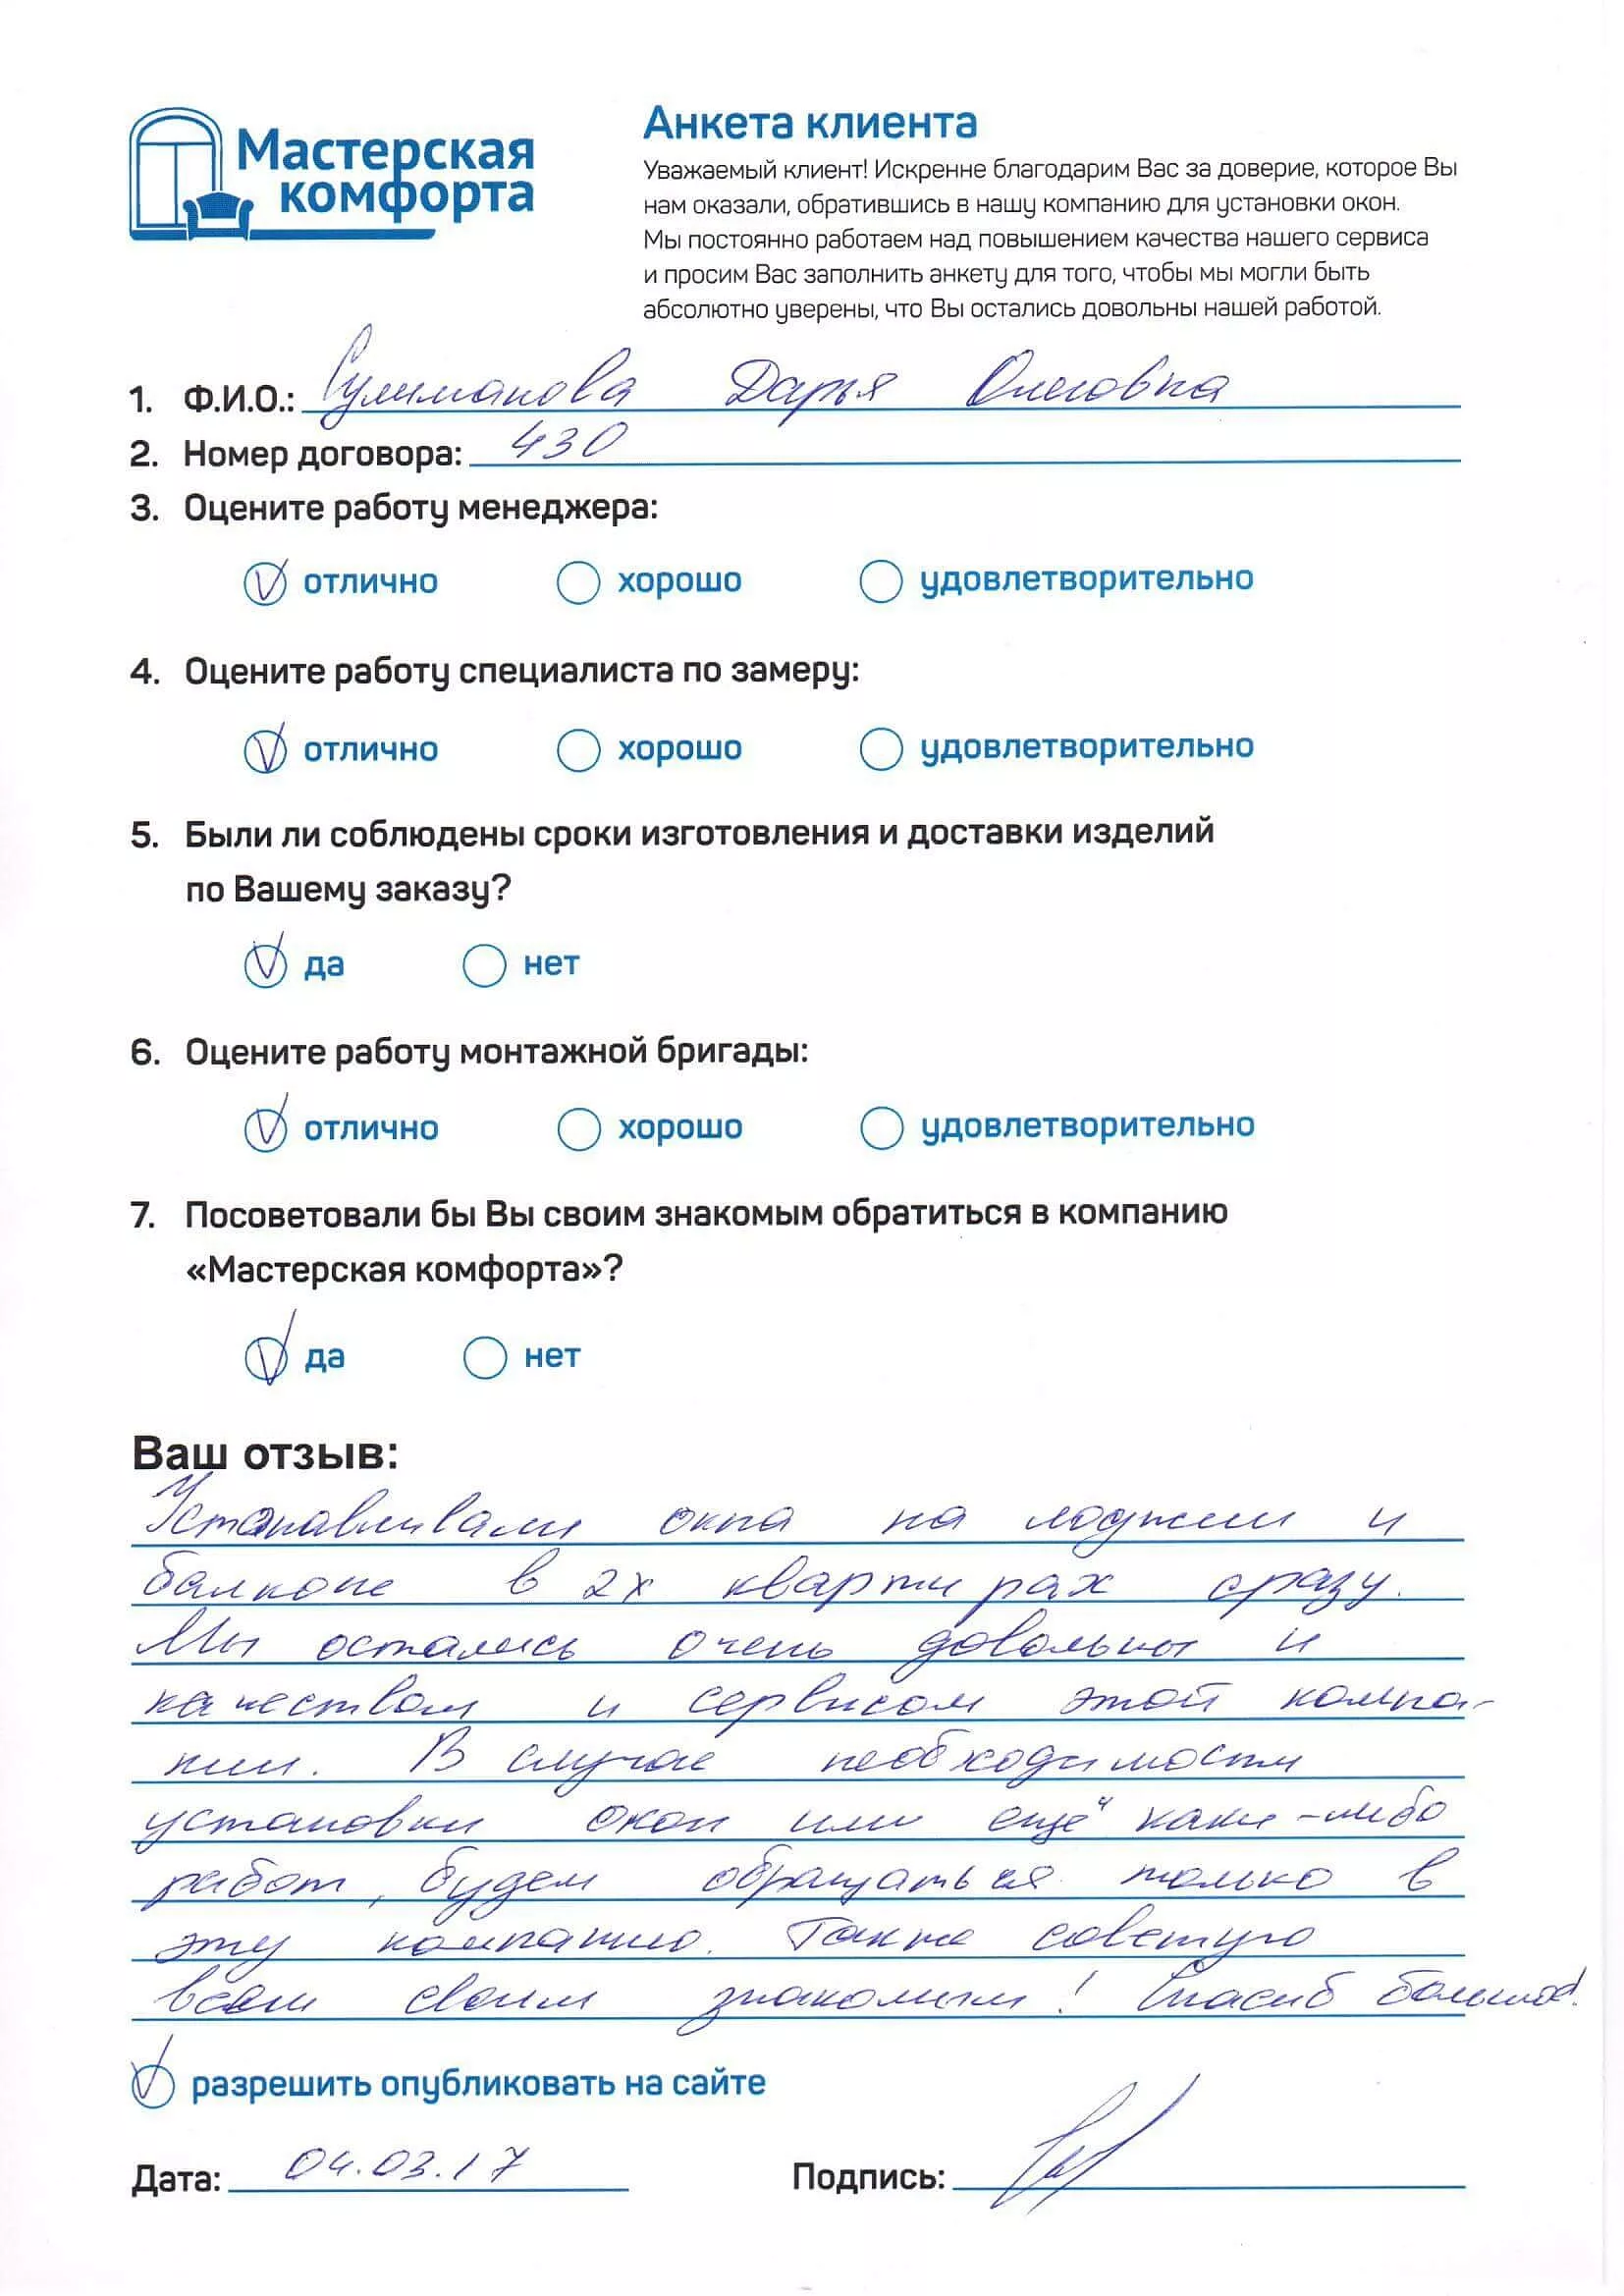 Мастерская
комфорта
Анкета клиента
Уважаемый клиент! Искренне благодарим Вас за доверие, которое Вы
нам оказали, обратившись в нашу компанию для установки окон.
Мы постоянно работаем над повышением качества нашего сервиса
и просим Вас заполнить анкету для того, чтобы мы могли быть
абсолютно уверены, что Вы остались довольны нашей работой.
1. Ф.И.О.: Дарья Олеговна
2. Номер договора: 430
3. Оцените работу менеджера:
отлично хорошо удовлетворительно
4. Оцените работу специалиста по замеру:
отлично хорошо удовлетворительно
5. Были ли соблюдены сроки изготовления и доставки изделий
по Вашему заказу?
да нет
6. Оцените работу монтажной бригады:
отлично хорошо удовлетворительно
7. Посоветовали бы Вы своим знакомым обратиться в компанию
«Мастерская комфорта»?
да нет
Ваш отзыв:
Устанавливали окна на лоджии и
балконе в 2х квартирах сразу.
Мы остались очень довольны и
качеством и сервисом этой компа-
нии. В случае необходимости
установки окон или ещё каки-либо
работ, будем обращаться только в
эту компанию. Также советую
всем своим знакомым! Спасиб большое!
разрешить опубликовать на сайте
Дата: 04.03.17 Подпись: